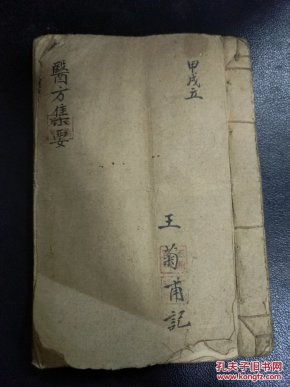 甲戌立
醫方集要
王菊甫記
孔夫子旧书网